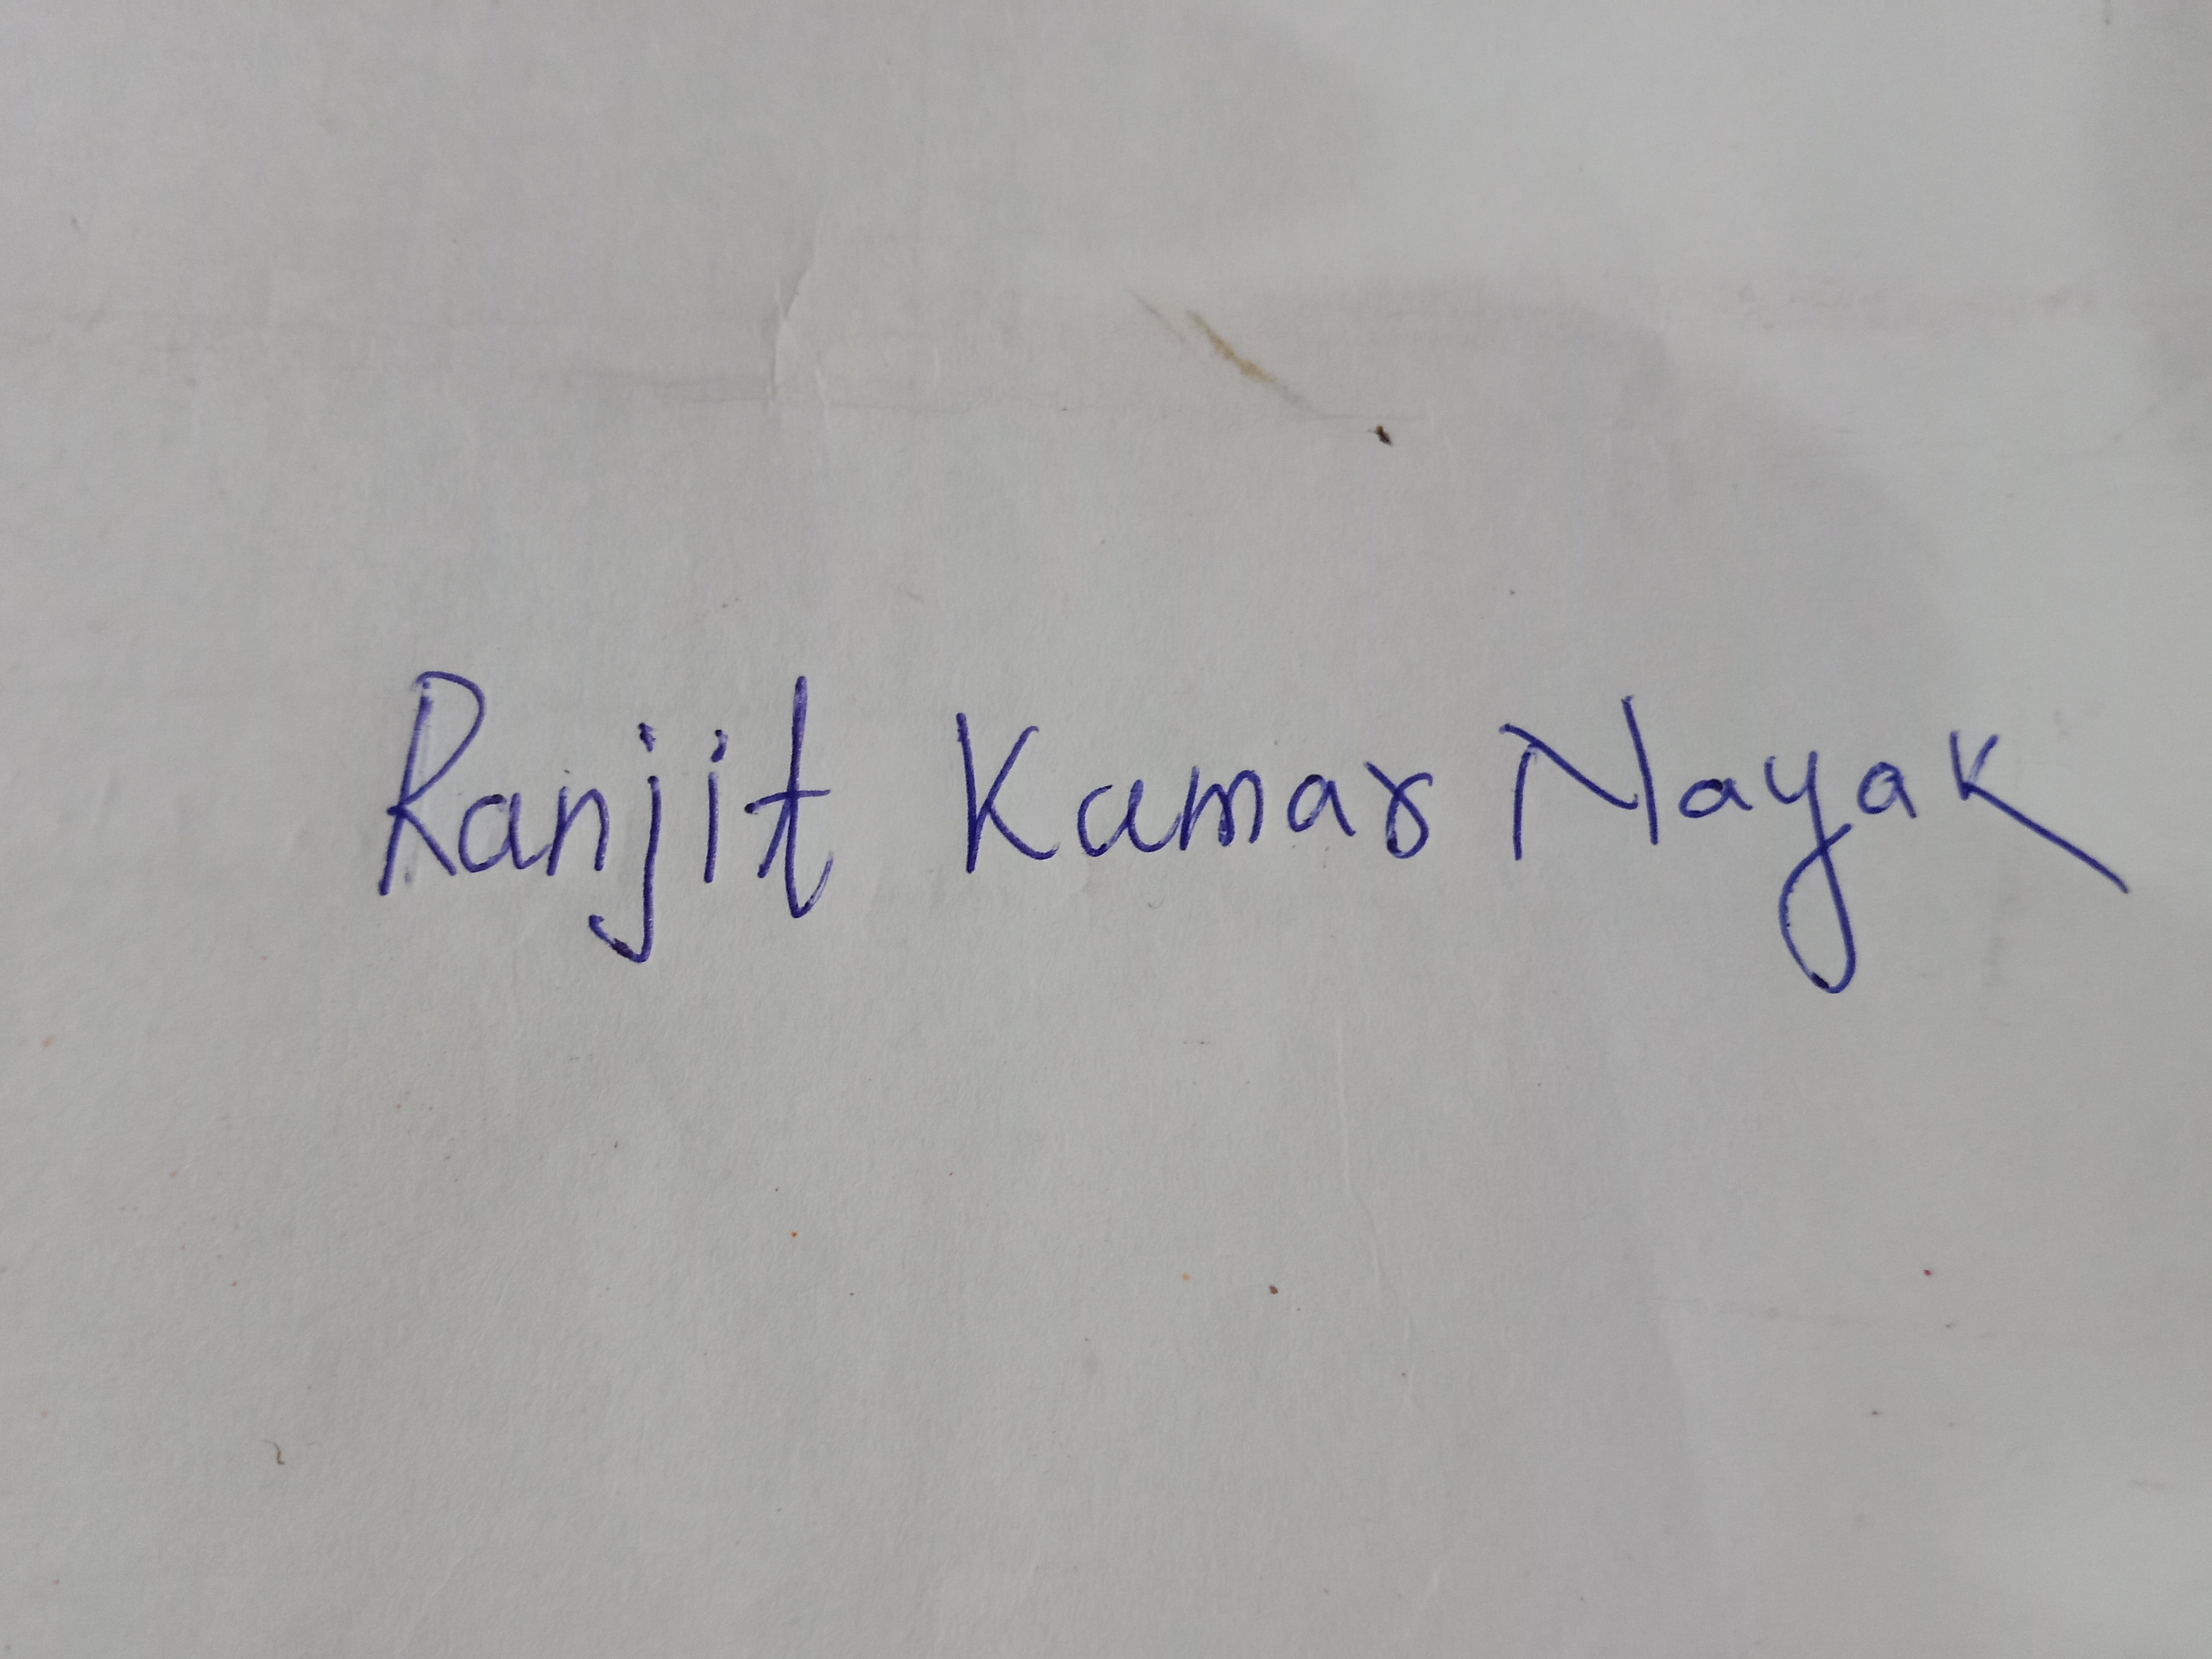 Ranjit Kumar Nayak